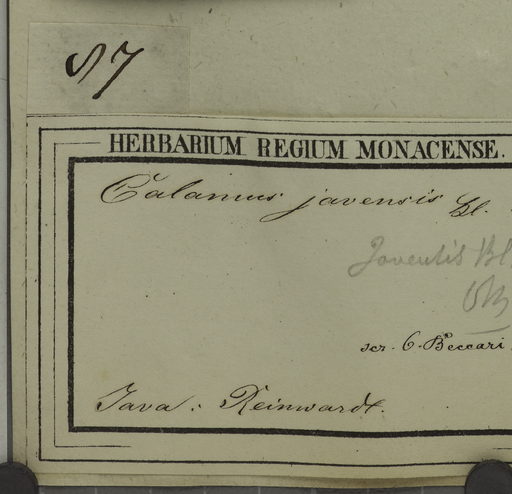 87
HERBARIUM REGIUM MONACENSE.
Calamus javensis Bl.
Javensis Bl
scr. O. Beccari.
Java. Reinwardt.